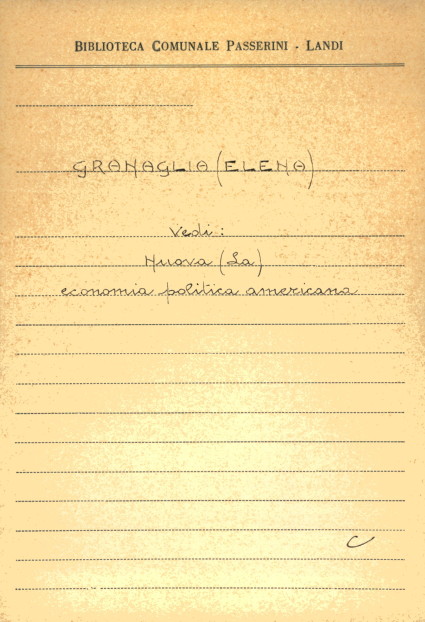 BIBLIOTECA COMUNALE PASSERINI - LANDI
GRANAGLIA (ELENA)
Vedi:
Nuova (La)
economia politica americana
C